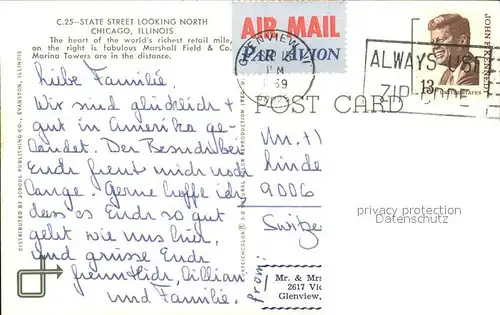 C.25-STATE STREET LOOKING NORTH
CHICAGO, ILLINOIS
The heart of the world's richest retail mile,
on the right is fabulous Marshall Field & Co.
Marina Towers are in the distance.
Liebe Familie,
Wir sind glücklich +
gut in Amerika ge-
landet. Der Besuch bei
Euch freut mich noch
lange. Gerne hoffe ich
dass es Euch so gut
geht wie uns hier,
und grüsse Euch
freundlich, Lillian
und Familie.
DISTRIBUTED BY JOBOUL PUBLISHING CO., EVANSTON, ILLINOIS
AIR MAIL
PAR AVION
GLENVIEW
PM
ALWAYS USE
ZIP CODE
JOHN F. KENNEDY
13c
UNITED STATES
POST CARD
9006
Switzer
privacy protection
Datenschutz
from:
Mr. & Mrs
2617 Vic
Glenview,